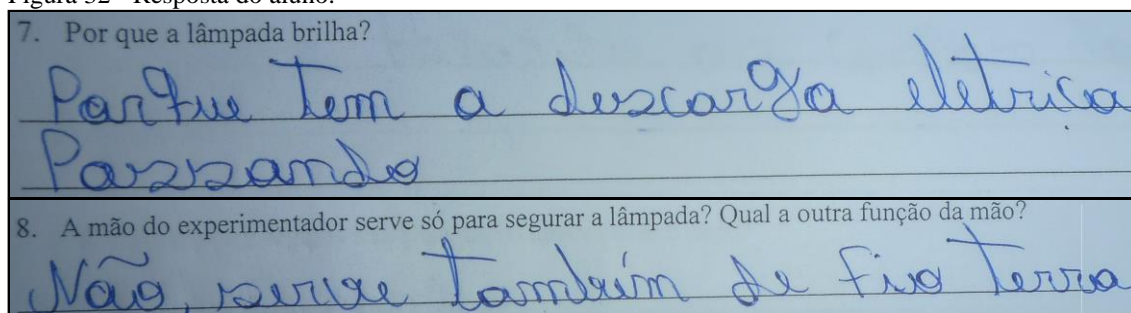 7. Por que a lâmpada brilha?
Porque tem a descarga eletrica
Passando
8. A mão do experimentador serve só para segurar a lâmpada? Qual a outra função da mão?
Não, serve também de fio terra